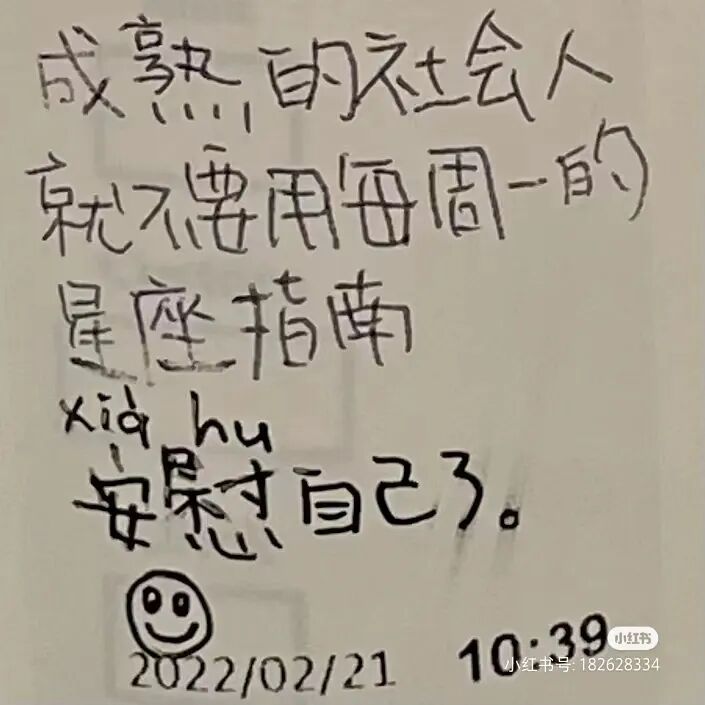 成熟的社会人
就不要用每周一的
星座指南
xià hu
安慰自己了。
2022/02/21 10:39
小红书
小红书号: 182628334